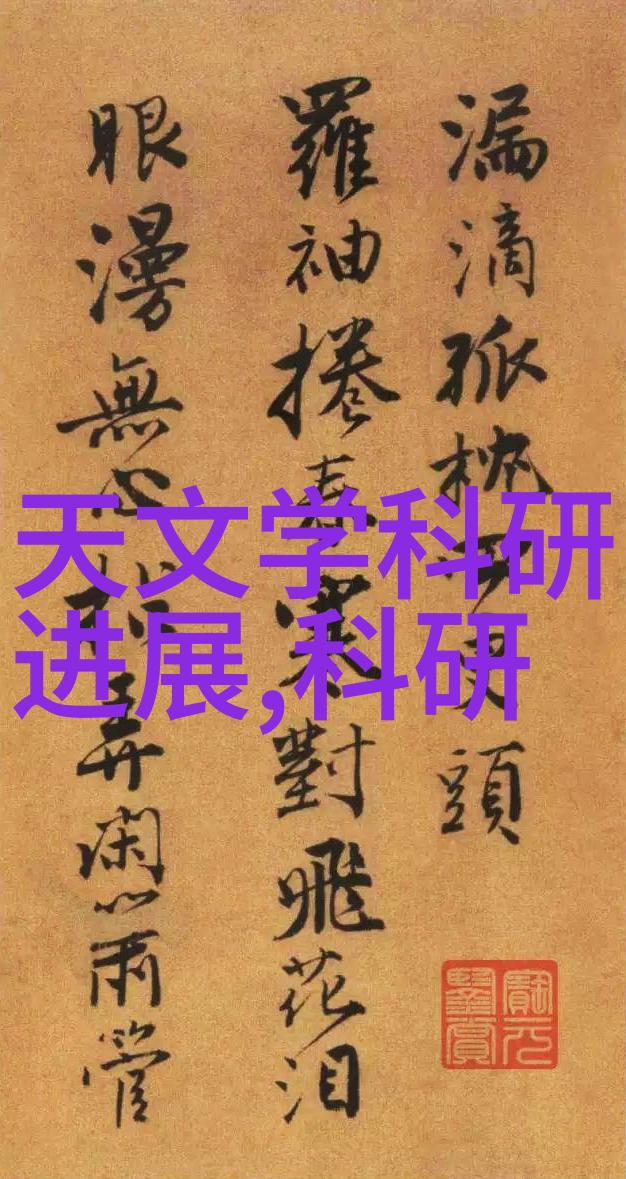 漏滴孤枕頭
羅袖捲春寒對飛花泪
眼漫無心弄閑管
天文学科研
进展,科研